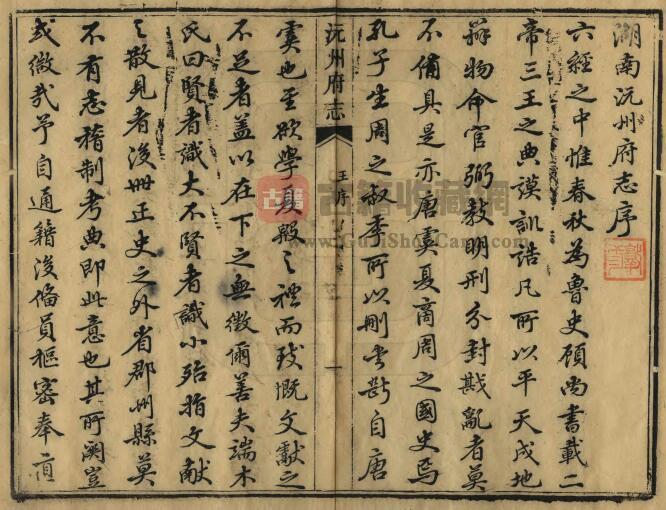 湖南沅州府志序
六經之中惟春秋為魯史顧尚書載二
帝三王之典謨訓誥凡所以平天成地
辨物命官弼教明刑分封戡亂者莫
不備具是亦唐虞夏商周之國史焉
孔子生周之叔季所以刪書斷自唐
沅州府志
王序
一
虞也至欲學夏殷之禮而致慨文獻之
不足者蓋以在下之無徵爾善夫端木
氏曰賢者識大不賢者識小殆指文獻
之散見者後世正史之外省郡州縣莫
不有志稽制考典即此意也其所闕豈
或微哉予自通籍後備員樞密奉直
古籍收藏網
www.GuJiShouCang.com